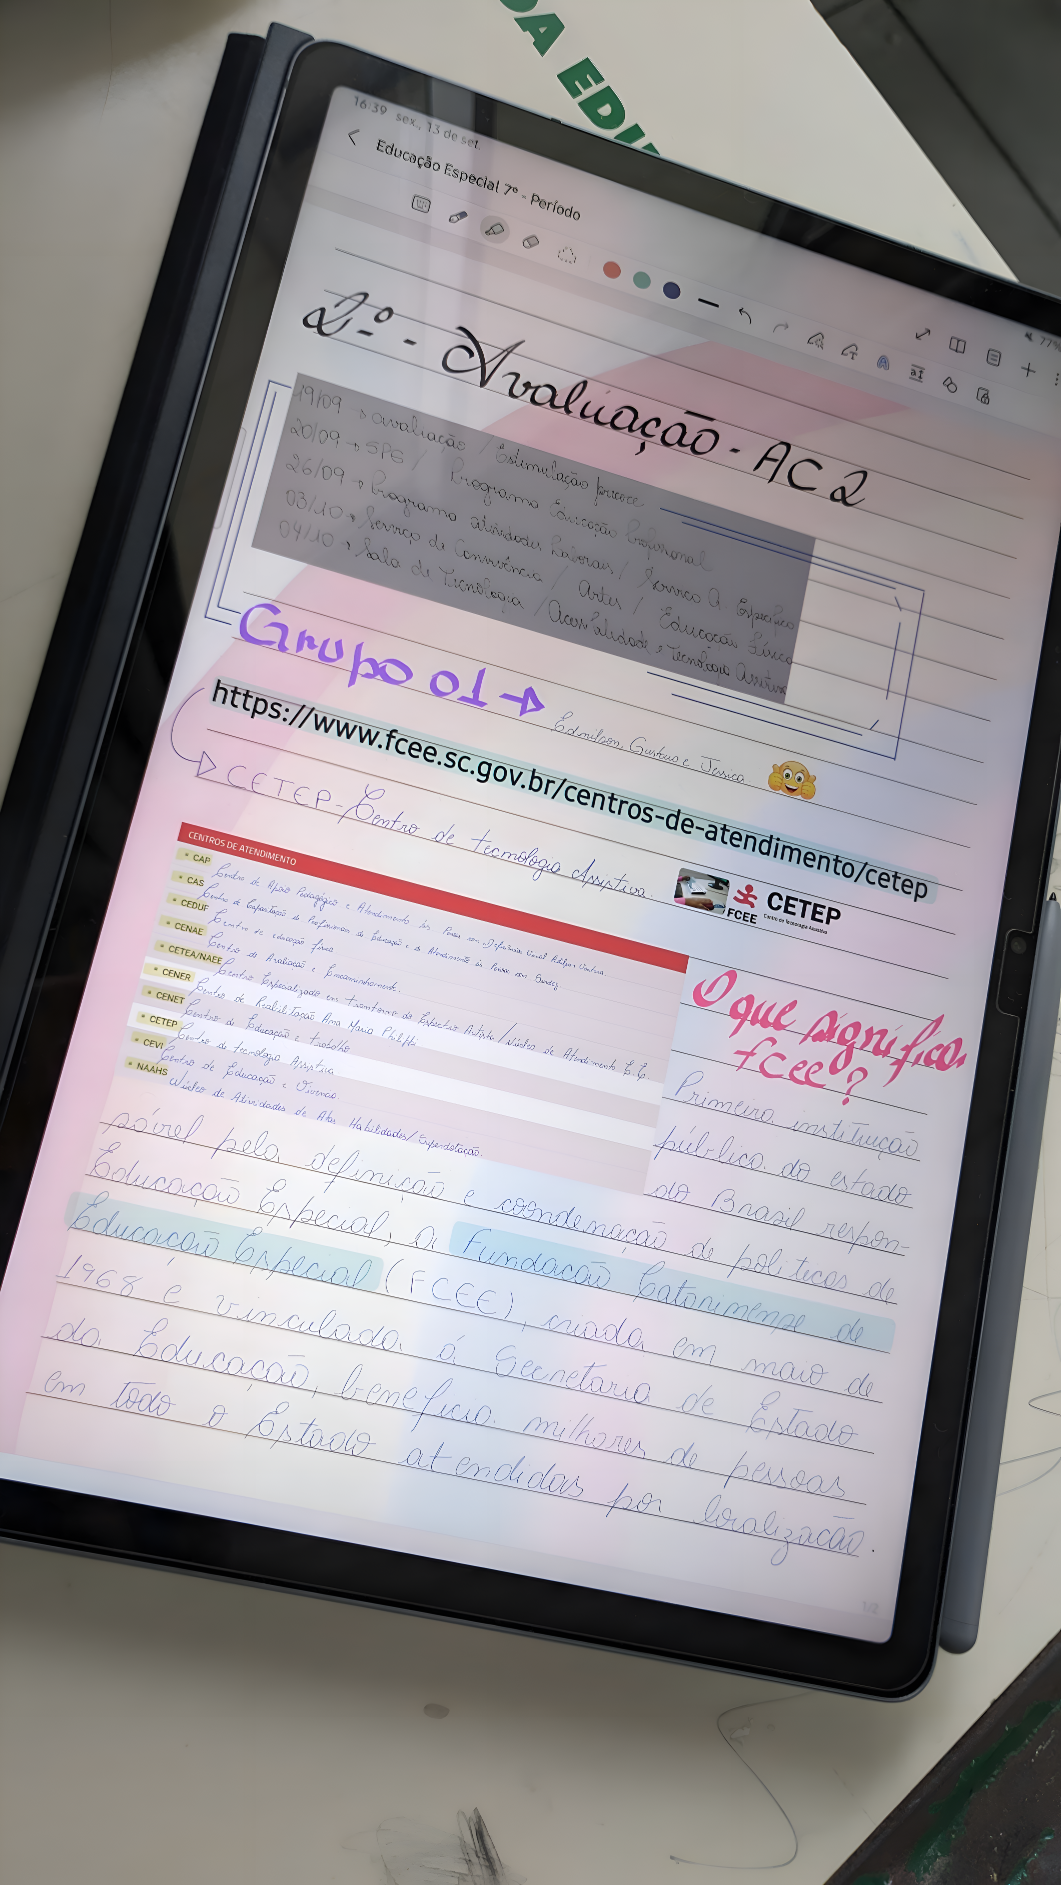 DA EDU
16:39 sex., 13 de set.
77%
Educação Especial 7º - Período
2º - Avaliação - AC 2
19/09 → avaliação / Estimulação precoce
20/09 → SPE / Programa Educação Profissional
26/09 → Programa atividades Laborais / Serviço A Específico
03/10 → Serviço de Convivência / Artes / Educação Física
04/10 → Sala de Tecnologia / Acessibilidade e Tecnologia Assistiva
Grupo 01 → Ednilson, Gustavo e Jessica
https://www.fcee.sc.gov.br/centros-de-atendimento/cetep
CETEP - Centro de tecnologia Assistiva.
FCEE CETEP
Centro de Tecnologia Assistiva
CENTROS DE ATENDIMENTO
• CAP Centro de Apoio Pedagógico e Atendimento às Pessoas com Deficiência Visual
• CAS Centro de Capacitação de Profissionais da Educação e de Atendimento às Pessoas com Surdez
• CEDUF Centro de educação física
• CENAE Centro de Avaliação e Encaminhamento.
• CETEA/NAEE Centro Especializado em transtorno do Espectro Autista / Núcleo de Atendimento E.E.
• CENER Centro de Reabilitação Ana Maria Philippi
• CENET Centro de Educação e trabalho
• CETEP Centro de tecnologia Assistiva
• CEVI Centro de Educação e Vivência
• NAAHS Núcleo de Atividades de Altas Habilidades/Superdotação.
O que significa
fcee?
Primeira instituição
pública do estado
do Brasil respon-
sável pela definição e coordenação de políticas de
Educação Especial, a Fundação Catarinense de
Educação Especial (FCEE), criada em maio de
1968 e vinculada á Secretaria de Estado
da Educação, beneficia milhares de pessoas
em todo o Estado atendidas por localização.
1/2